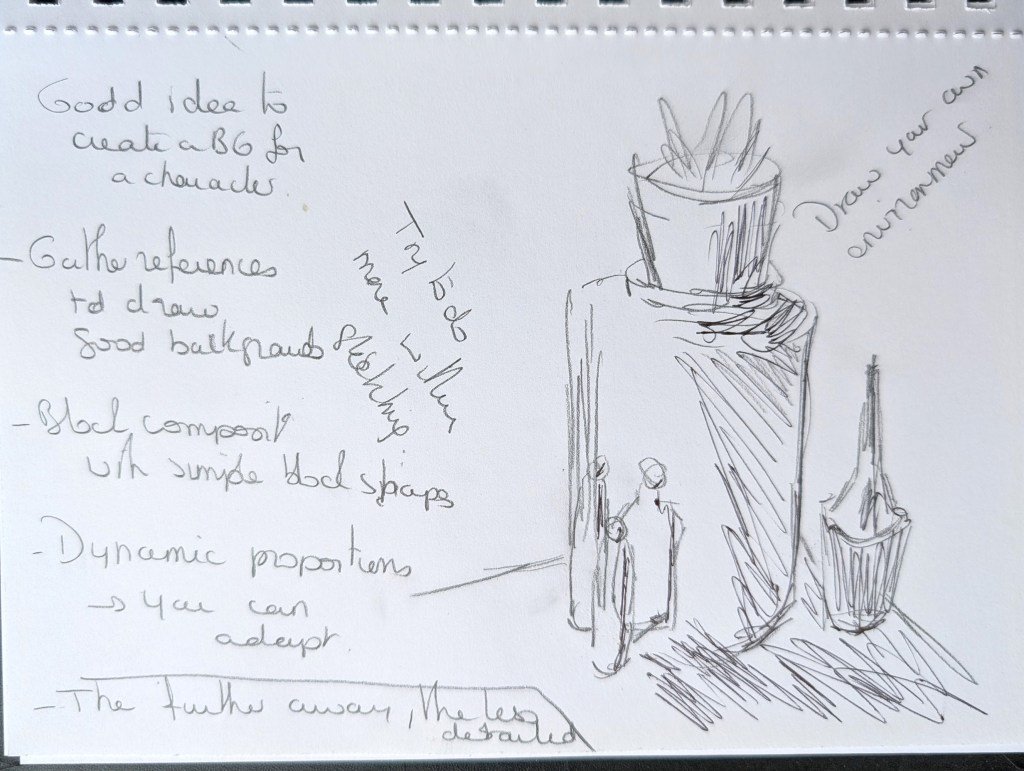 Good idea to
create a BG for
a character.
- Gather references
to draw
good backgrounds
Try to do
more
sketching
Draw your own
- Block composit
with simple block shapes
- Dynamic proportions
→ you can
adapt.
- The further away, the less
detailed